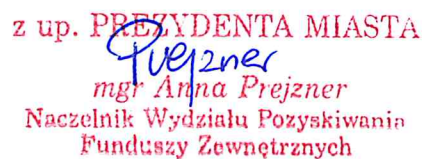 z up. PREZYDENTA MIASTA
Prejzner
mgr Anna Prejzner
Naczelnik Wydziału Pozyskiwania
Funduszy Zewnętrznych